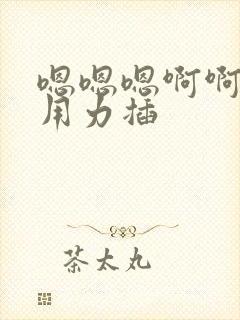 嗯嗯嗯啊啊
用力插
茶太丸